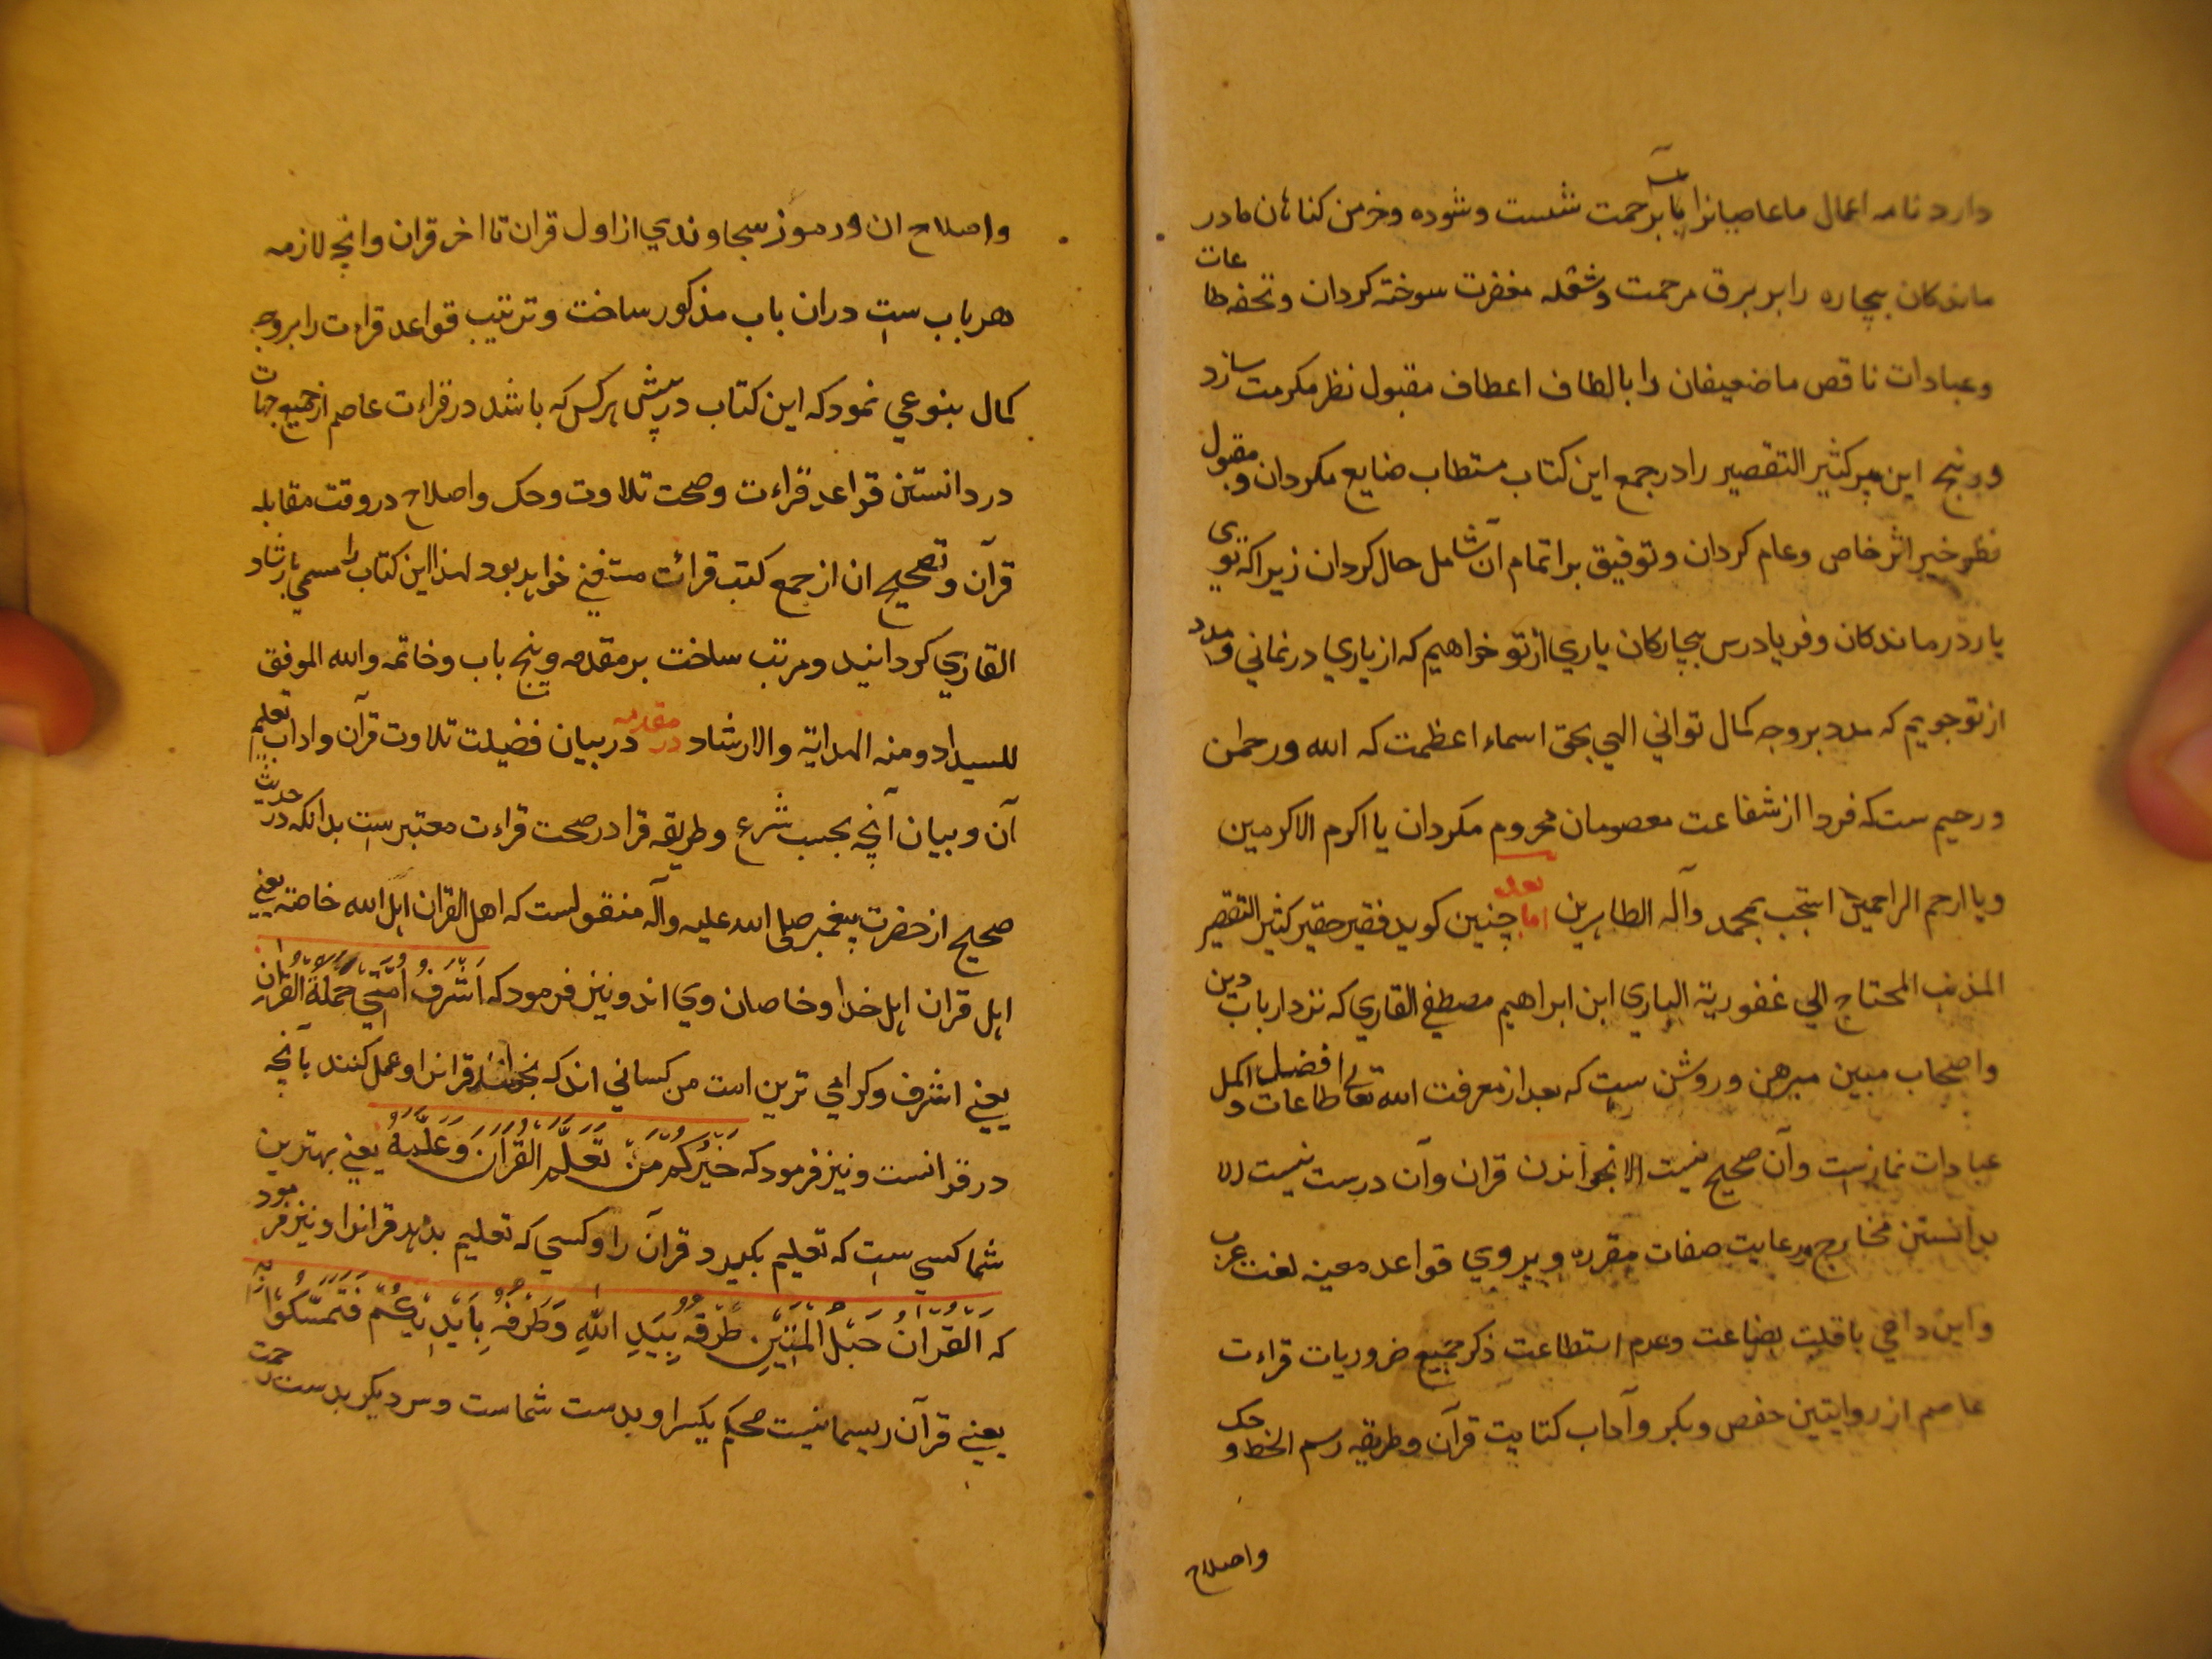 دارد نامه اعمال ما عاصیانرا بآب رحمت شست وشوده وخرمن کناهان ما در
ماندکان بیچاره را بر برق مرحمت وشعله مغفرت سوخته کردان وتحفه طاعات
وعبادات ناقص ما ضعیفان را بالطاف اعطاف مقبول نظر مکرمت سازد
ورنج این کثیر التقصیر را در جمع این کتاب مستطاب ضایع مکردان ومقبول
نظر خیر اثر خاص وعام کردان وتوفیق بر اتمام آن شامل حال کردان زیرا که توی
یار درماندکان وفریادرس بیچارکان یاري از تو خواهیم که از یاري درنماني ومدد
از تو جوییم که مدد بر وجه کمال تواني الهي بحق اسماء اعظمت که الله ورحمن
ورحیم ست که فردا از شفاعت معصومان محروم مکردان یا اکرم الاکرمین
ویا ارحم الراحمین استجب بمحمد وآله الطاهرین اما بعد چنین کوید فقیر حقیر کثیر التقصیر
المذنب المحتاج الي غفوریة الباري ابن ابراهیم مصطفي القاري که نزد ارباب دین
واصحاب مبین مبرهن وروشن ست که بعد از معرفت الله تعالي افضل طاعات واکمل
عبادات نمازست وآن صحیح نیست الا بخواندن قران وآن درست نیست الا
بدانستن مخارج ورعایت صفات مقرره وپیروي قواعد معینه لغت عرب
واین داعي با قلت بضاعت وعدم استطاعت ذکر جمیع ضروریات قراءت
عاصم از روایتین حفص وبکر وآداب کتابت قرآن وطریقه رسم الخط وحک
واصلاح
واصلاح ان ورموز سجاوندي از اول قران تا اخر قران وانچه لازمه
هر باب ست دران باب مذکور ساخت وترتیب قواعد قراءت را بر وجه
کمال بنوعي نمود که این کتاب در پیش هرکس که باشد در قراءت عاصم از جمیع جهات
در دانستن قواعد قراءت وصحت تلاوت وحک واصلاح در وقت مقابله
قرآن وتصحیح ان از جمع کتب قرائت مستغني خواهد بود لهذا این کتاب را مسمي بارشاد
القاري کردانید ومرتب ساخت بر مقدمه وپنج باب وخاتمه والله الموفق
للسداد ومنه الهدایة والارشاد مقدمه در در بیان فضیلت تلاوت قرآن واداب تعلم
آن وبیان آنچه بحسب شرع وطریقه قرا در صحت قراءت معتبرست بدانکه در حدیث
صحیح از حضرت پیغمبر صلی الله علیه وآله منقولست که اهل القران اهل الله خاصة یعني
اهل قران اهل خدا وخاصان وي اند ونیز فرمود که اَشْرَفُ اُمَّتِي حَمَلَةُ الْقُرانِ
یعني اشرف وکرامي ترین امت من کساني اند که بخوانند قرانرا وعمل کنند بآنچه
در قرانست ونیز فرمود که خَیْرُکُمْ مَنْ تَعَلَّمَ الْقُرْانَ وَعَلَّمَهُ یعني بهترین
شما کسي ست که تعلیم بکیرد قرآن را وکسي که تعلیم بدهد قرانرا ونیز فرمود
که اَلْقُرْانُ حَبْلُ الْمَتِیْنِ طَرَفُهُ بِیَدِ اللّهِ وَطَرَفُهُ بِاَیْدِیْکُمْ فَتَمَسَّکُوْا بِه
یعني قرآن ریسمانیست محکم یکسر او بدست شماست وسر دیکر بدست رحمت